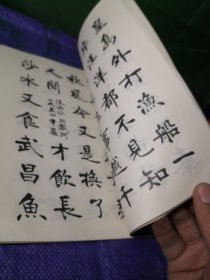 皇島外打漁船一
汪洋都不見知
越千
今又是換了
人間
才飲長
沙水又食武昌魚